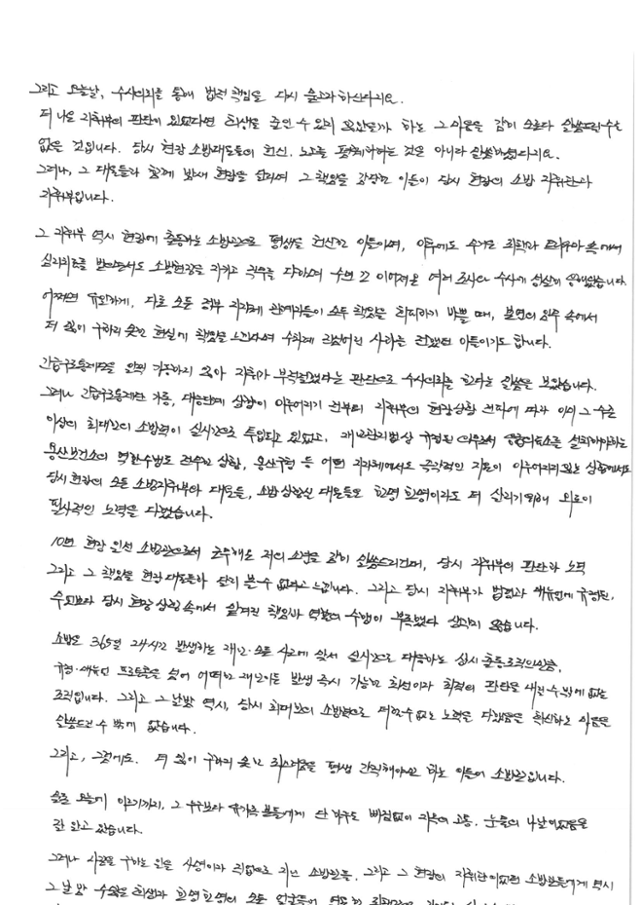 그리고 오늘날, 수사의뢰를 통해 법적 책임을 다시 묻고자 하신다지요.
더 나은 지휘부의 판단이 있었다면 희생을 줄일 수 있지 않았을까 하는 그 마음을 감히 모른다 말씀드릴 수는
없을 것입니다. 당시 현장 소방대원들의 헌신, 노고를 폄훼하려는 것은 아니라 말씀하셨다지요.
그러나, 그 대원들과 함께 밤새 현장을 살피며 그 책임을 감당한 이들이 당시 현장의 소방 지휘관과
지휘부입니다.
그 지휘부 역시 현장에 출동하는 소방관으로 평생을 헌신한 이들이며, 이후에도 수개월 죄책과 트라우마 속에서
심리치료를 받으면서도 소방현장을 지키고 직무를 다하며 수면 끝 이어져온 여러 조사와 수사에 성실히 임해왔습니다.
어쩌면 유일하게, 다른 모든 정부 지자체 관계자들이 모두 책임을 회피하기 바쁠 때, 본연의 임무 속에서
더 많이 구하지 못한 현실에 책임을 느낀다며 수차례 고개숙여 사과를 전했던 이들이기도 합니다.
긴급구조통제단을 일찍 가동하지 않아 지휘가 부적절했다는 판단으로 수사의뢰를 한다는 말씀을 보았습니다.
그러나 긴급구조통제단 가동, 대응단계 상향이 이루어지기 전부터 지휘부의 현장상황 전파에 따라 이미 그 수준
이상의 최대한의 소방력이 실시간으로 투입되고 있었고, 재난관리법상 규정된 의무로서 현장응급의료소를 설치해야하는
용산보건소의 역할수행도 전무한 상황, 용산구청 등 어떤 지자체에서도 즉각적인 지원이 이루어지지 않는 상황에서도
당시 현장의 모든 소방지휘부와 대원들, 소방상황실 대원들은 한명 한명이라도 더 살리기위해 외로이
필사적인 노력을 다했습니다.
10년 현장 일선 소방관으로서 조심스레 저의 소견을 감히 말씀드리건대, 당시 지휘부의 판단과 노력
그리고 그 책임을 현장대원들과 달리 볼 수 없다고 느낍니다. 그리고 당시 지휘부가 법령과 매뉴얼에 규정된,
수행보다 당시 현장 상황 속에서 맡겨진 책임과 역할의 수행이 부족했다 생각지 않습니다.
소방은 365일 24시간 발생하는 재난·모든 사고에 맞서 실시간으로 대응하는 상시 출동조직으로서,
규정·매뉴얼 프로토콜을 넘어 어떠한 재난이든 발생 즉시 가능한 최선이자 최적의 판단을 내릴 수밖에 없는
조직입니다. 그리고 그 날밤 역시, 당시 최대한의 소방력으로 더할 수 없는 노력을 다했음을 확신하는 마음을
말씀드릴 수 밖에 없습니다.
그리고, 그럼에도. 더 많이 구하지 못한 죄스러움을 평생 간직해야만 하는 이들이 소방관입니다.
슬픔 오늘에 이르기까지, 그 누구보다 유가족 분들에게 단 하루도 빠짐없이 지옥의 고통, 눈물의 나날이었음을
잘 알고 있습니다.
그러나 사람을 구하는 일을 사명이자 직업으로 지닌 소방관들, 그리고 그 현장의 지휘관이었던 소방관들에게 역시
그 날 밤 수많은 희생과 한명 한명의 모든 얼굴들이